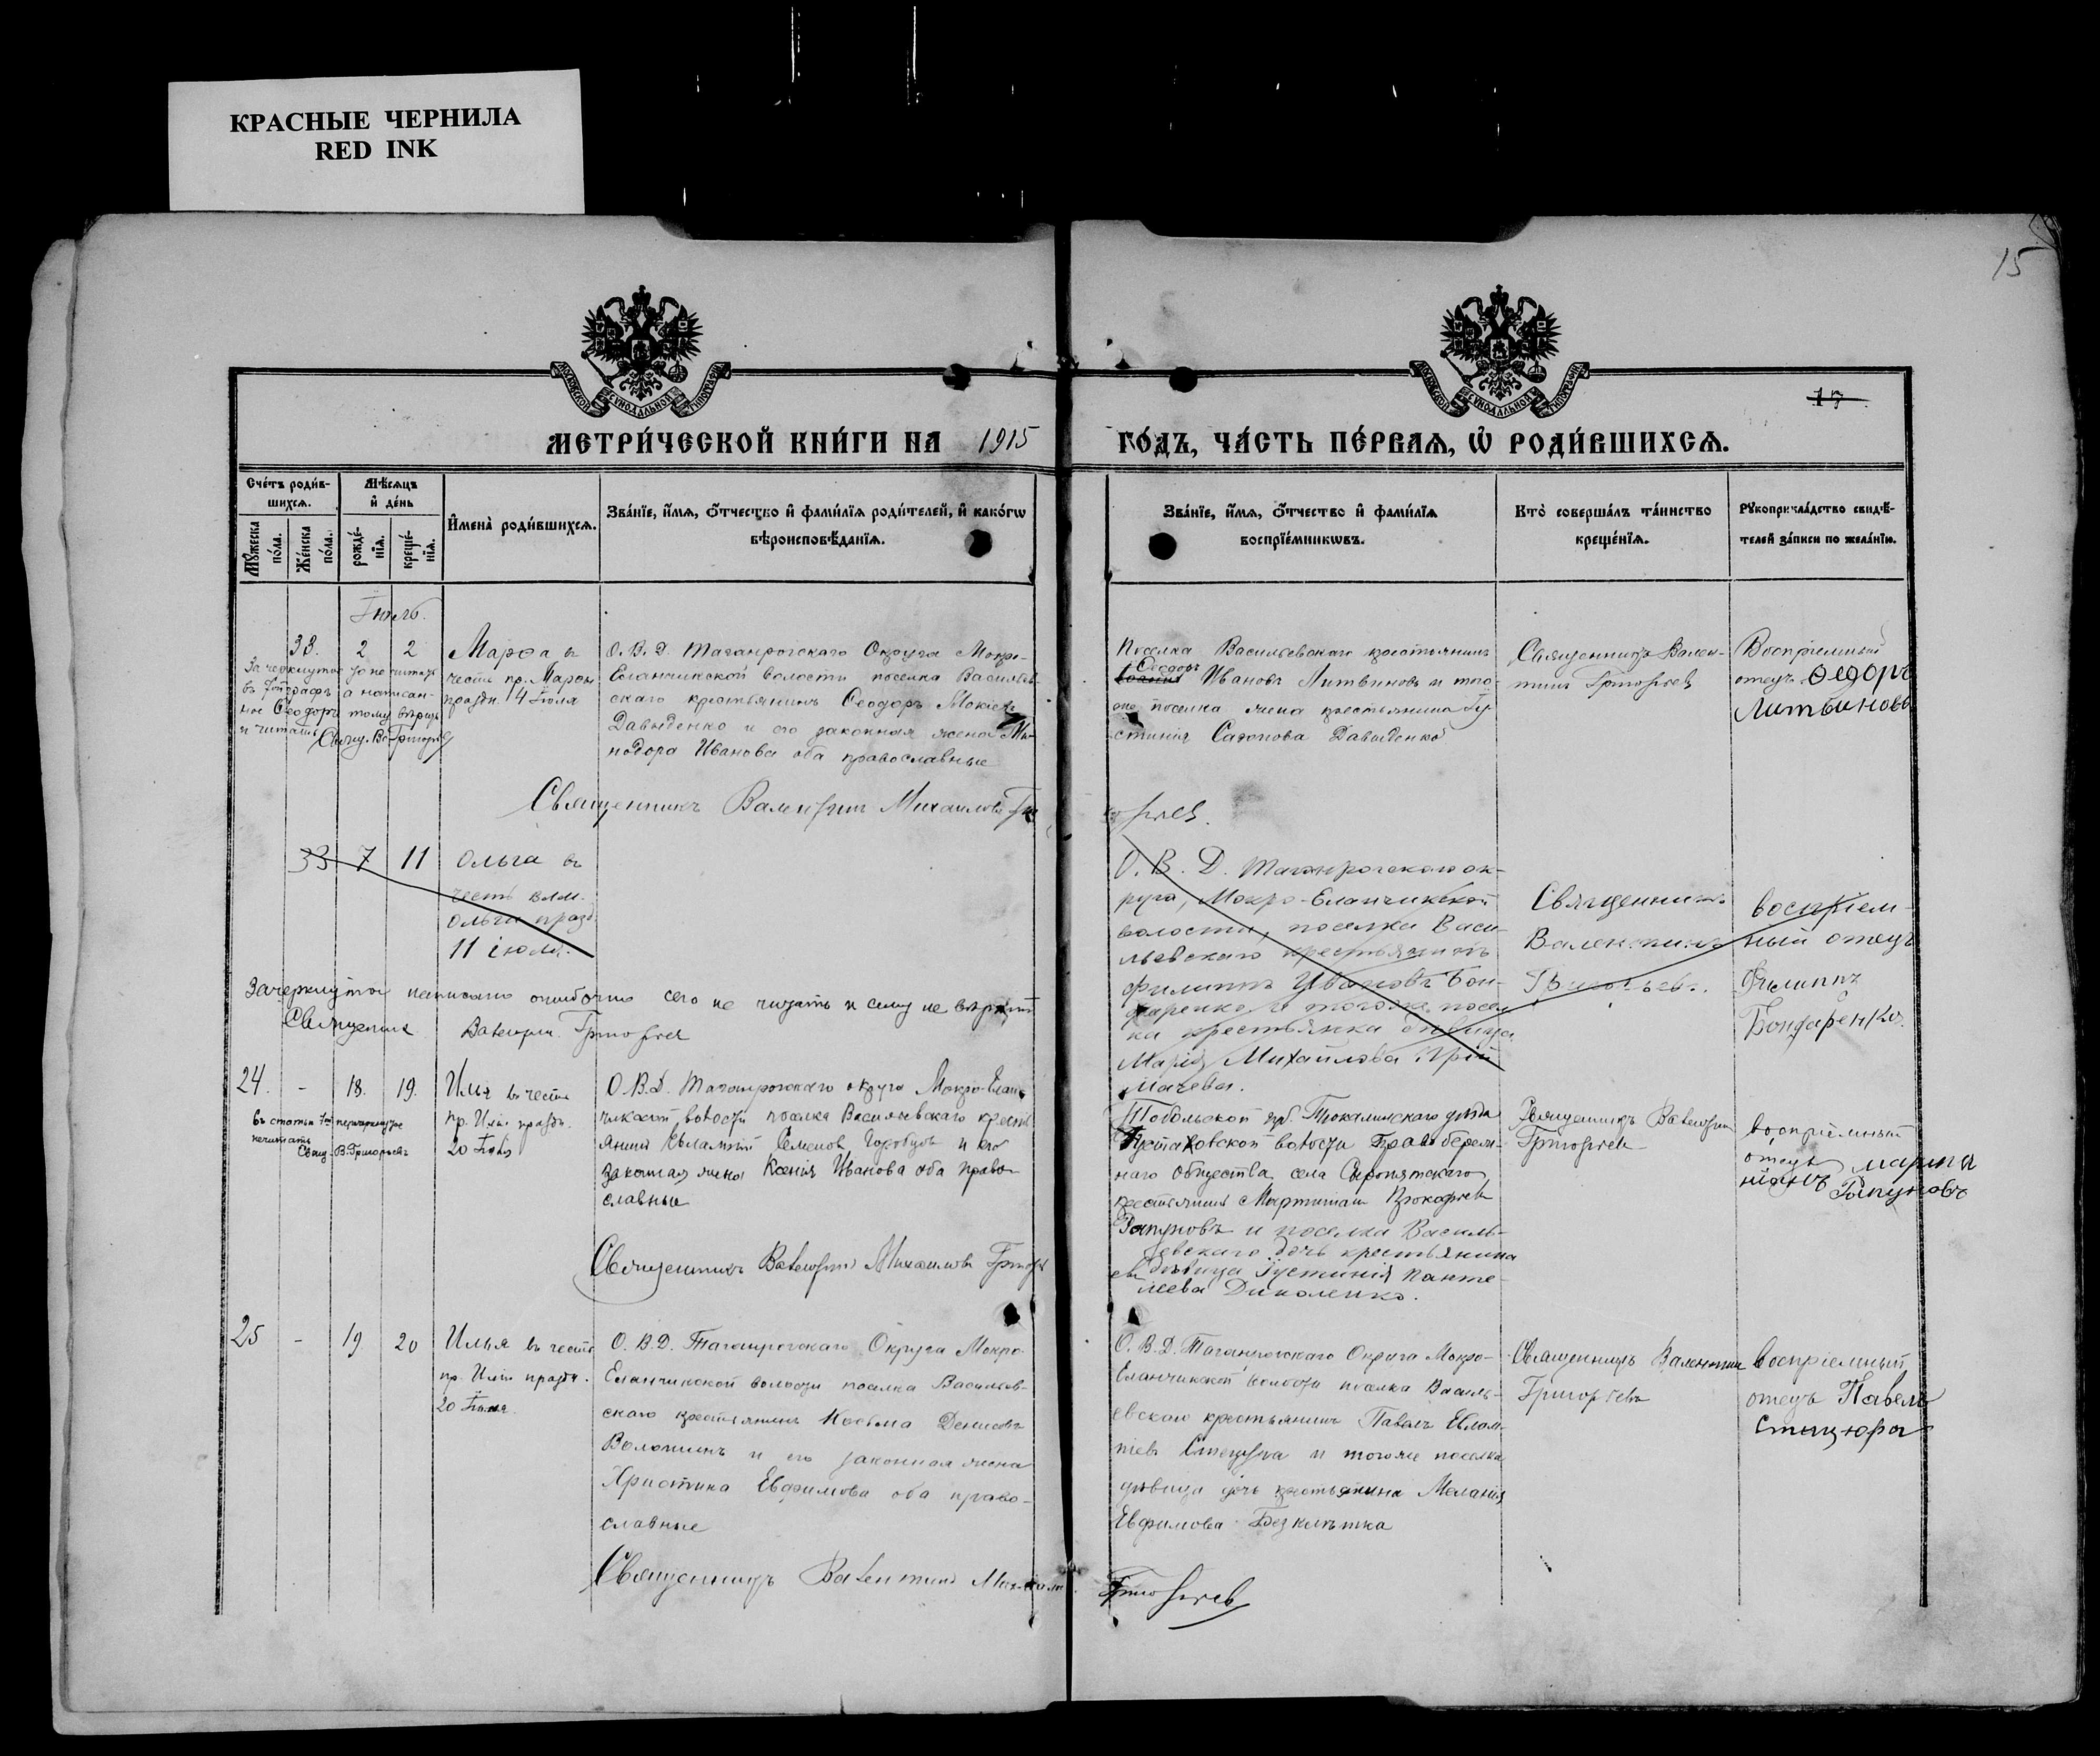 КРАСНЫЕ ЧЕРНИЛА
RED INK
15
МОСКОВСКОЙ СѴНОДАЛЬНОЙ ТИПОГРАФІИ
МОСКОВСКОЙ СѴНОДАЛЬНОЙ ТИПОГРАФІИ
МЕТРИ́ЧЕСКОЙ КНИ́ГИ НА 1915
ГО́ДЪ, ЧА́СТЬ ПЕ́РВАЯ, Ѡ҆ РОДИ́ВШИХСЯ.
Сче́тъ роди́в-
шихся.
Мѣ́сяцъ
и҆ де́нь
Мꙋ́жеска по́ла.
Же́нска по́ла.
рожде́-
нїѧ.
креще́-
нїѧ.
И҆мена̀ роди́вшихся.
Зва́нїе, и҆́мѧ, ѻ҆́тчество и҆ фами́лїѧ роди́телей, и҆ како́гѡ
вѣроисповѣ́данїѧ.
Зва́нїе, и҆́мѧ, ѻ҆́тчество и҆ фами́лїѧ
воспрїе́мникѡвъ.
Кто̀ соверша́лъ та́инство
креще́нїѧ.
Рꙋкоприкла́дство свидѣ́-
телей за́писи по жела́нїю.
Іюль.
33. 2 2
Марѳа въ
честь пр. Марѳы
праздн. 4 Іюля
О. В. Д. Таганрогскаго Округа Мокро-
Еланчикской волости поселка Васильев-
скаго крестьянинъ Ѳеодоръ Мокіевъ
Давыденко и его законная жена Ми-
нодора Иванова оба православные
Поселка Васильевскаго крестьянинъ
Ѳеодоръ
Ивановъ Литвиновъ и того-
же поселка жена крестьянина Іу-
стинія Давыденко
Священникъ Вален-
тинъ Григорьев
Воспріемный
отецъ Ѳедоръ
Литвиновъ
Священникъ Валентин Михаиловъ Гри
горьев.
33 7 11
Ольга въ
честь
Ольги празд.
11 іюля.
О. В. Д. Таганрогскаго ок-
руга, Мокро-Еланчикской
волости, поселка Васи-
льевскаго крестьянинъ
Филиппъ Ивановъ Бон-
даренко и тогоже посел
ка крестьянка дѣвица
Марія Михайлова
Священникъ
Валентинъ
Григорьевъ.
воспріем-
ный отецъ
Филиппъ
Бондаренко.
Зачеркнутое написано ошибочно сего не читать и сему не вѣрить
Священник Валентин Григорьев
24. - 18. 19.
Илья въ честь
пр. Иліи праздн.
20 Іюля
О. В. Д. Таганрогскаго округа Мокро-Елан-
чикской волости поселка Васильевскаго кресть
янинъ Евлампій Семеновъ и его
законная жена Ксенія Иванова оба право
славные
Тобольской губ. Тюкалинскаго уѣзда
волости
наго общества, села Сыропятскаго
крестьянинъ Мартиніанъ Прокофьевъ
и поселка Василь-
евскаго дочь крестьянина
дѣвица Іустинія Панте-
леева Диколенко.
Священникъ Валентин
Григорьев
воспріемный
отецъ Марти
ніанъ
Священникъ Валентин Михаиловъ Григорь
евъ
25 - 19. 20
Илья въ честь
пр. Иліи праздн.
20 Іюля.
О. В. Д. Таганрогскаго Округа Мокро
Еланчикской волости поселка Васильев-
скаго крестьянинъ Косьма Денисовъ
Волошинъ и его законная жена
Христина Евфимова оба право-
славные
О. В. Д. Таганрогскаго Округа Мокро-
Еланчикской волости поселка Василь-
евскаго крестьянинъ Павелъ Евлам-
піевъ Стецюра и тогоже поселка
дѣвица дочь крестьянина Меланія
Евфимова
Священникъ Валентин
Григорьевъ
воспріемный
отецъ Павелъ
Стецюра
Священникъ Валентинъ Михаил.
Григорьев